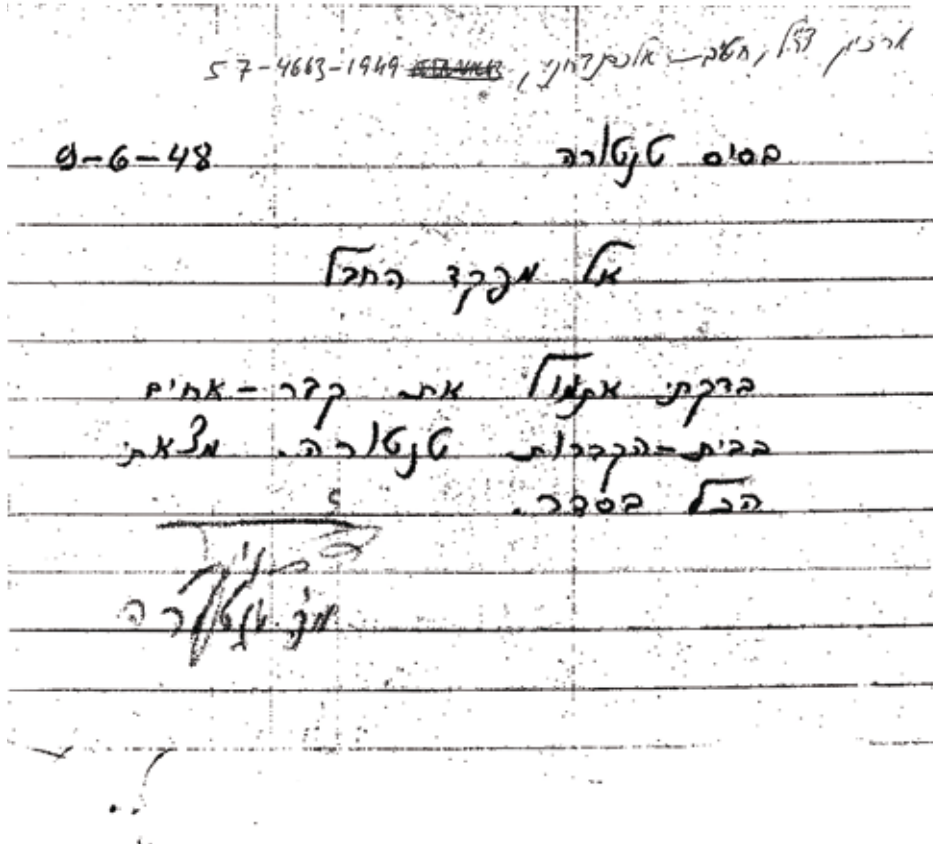 ארכיון צה"ל, חטיבת אלכסנדרוני, 57-4663-1949
בסיס טנטורה 9-6-48
אל מפקד החבל
בדקתי אתמול את קבר-אחים
בבית-הקברות טנטורה. מצאתי
הכל בסדר.
מפ. טנטורה